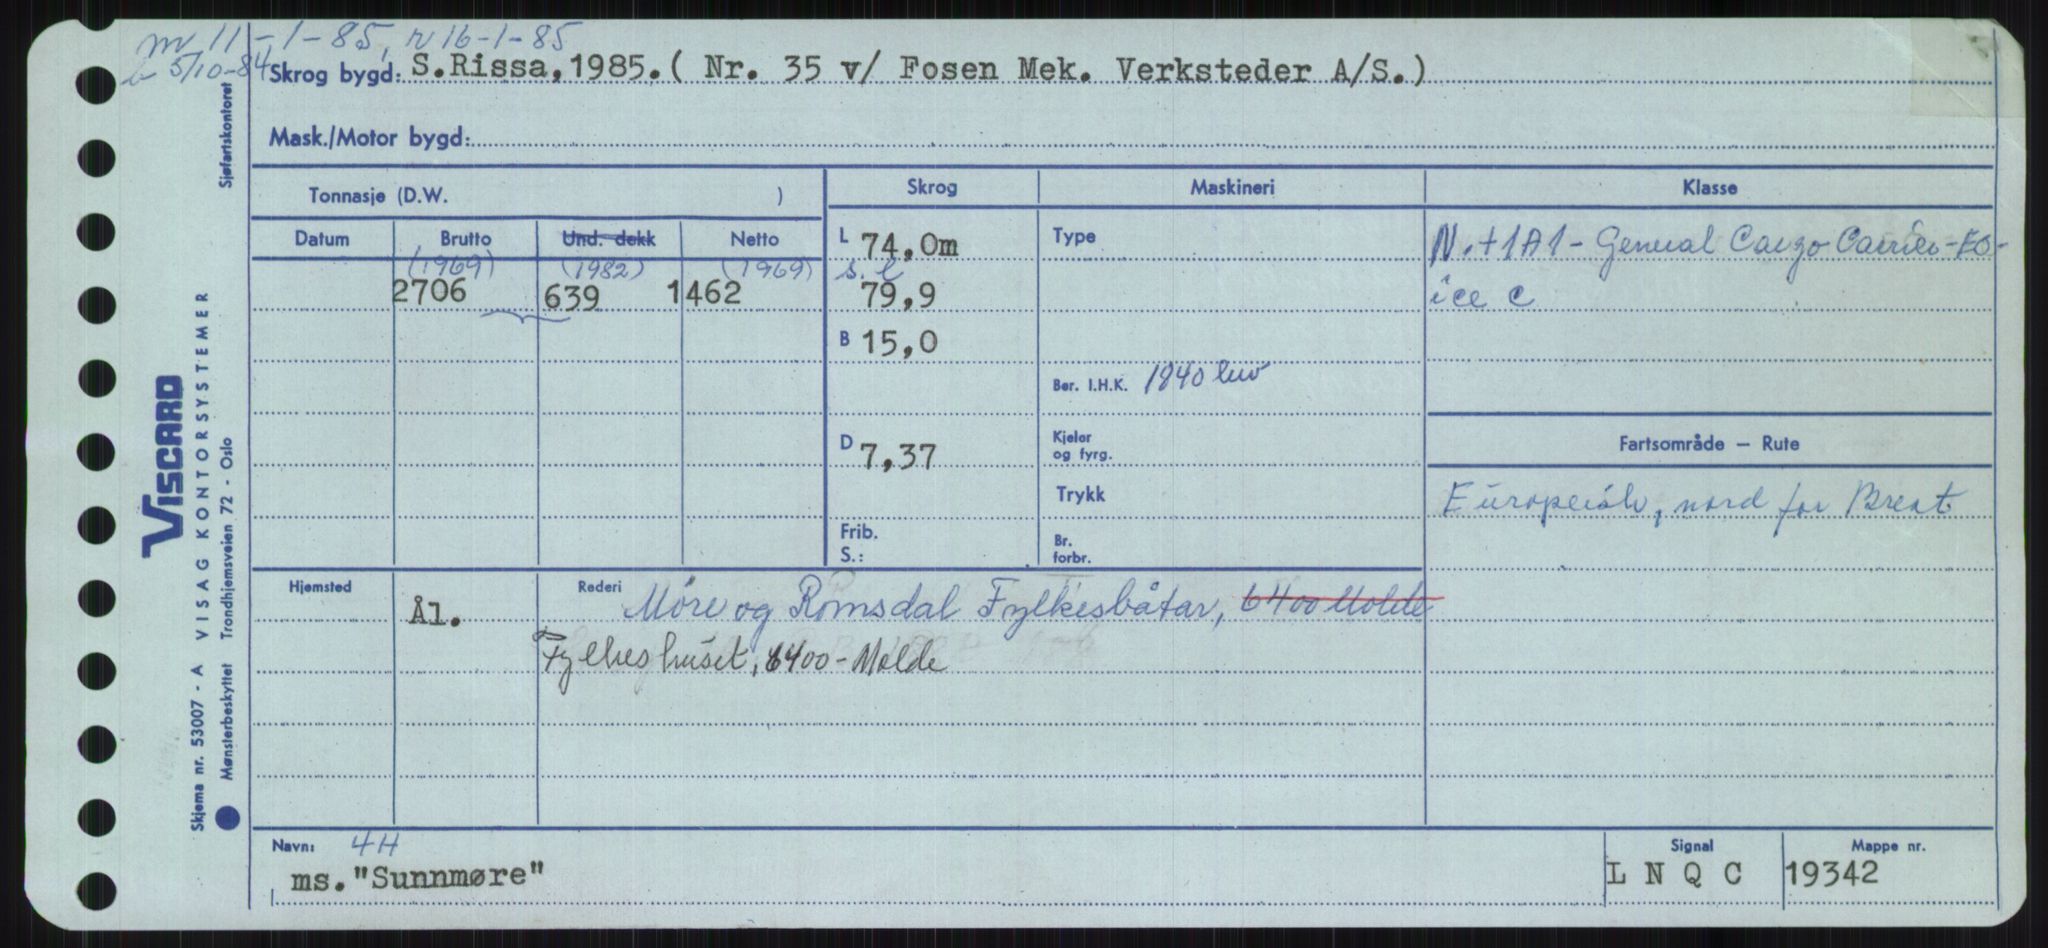 m 11-1-85, r 16-1-85
b 5/10-84
Skrog bygd: S.Rissa,1985.( Nr. 35 v/ Fosen Mek. Verksteder A/S.)
Mask./Motor bygd:
Tonnasje (D.W. )
Skrog
Maskineri
Klasse
Datum
Brutto
Und. dekk
Netto
(1969)
(1982)
(1969)
2706
639
1462
L 74,0m
s.l
79,9
B 15,0
D 7,37
Frib.
S.:
Type
Ber. I.H.K. 1840 kw
Kjeler
og fyrg.
Trykk
Br.
forbr.
N.+1A1 - General Cargo Carrier - EO -
ice C
Fartsområde — Rute
Europeisk, nord for Brest
Hjemsted
Ål.
Rederi
Møre og Romsdal Fylkesbåtar, 6400 Molde
Fylkeshuset, 6400 - Molde
Navn: 4H
ms."Sunnmøre"
Signal
L N Q C
Mappe nr.
19342
Sjøfartskontoret
VISCARD
VISAG KONTORSYSTEMER
Trondhjemsveien 72 - Oslo
Skjema nr. 53007 - A
Mønsterbeskyttet